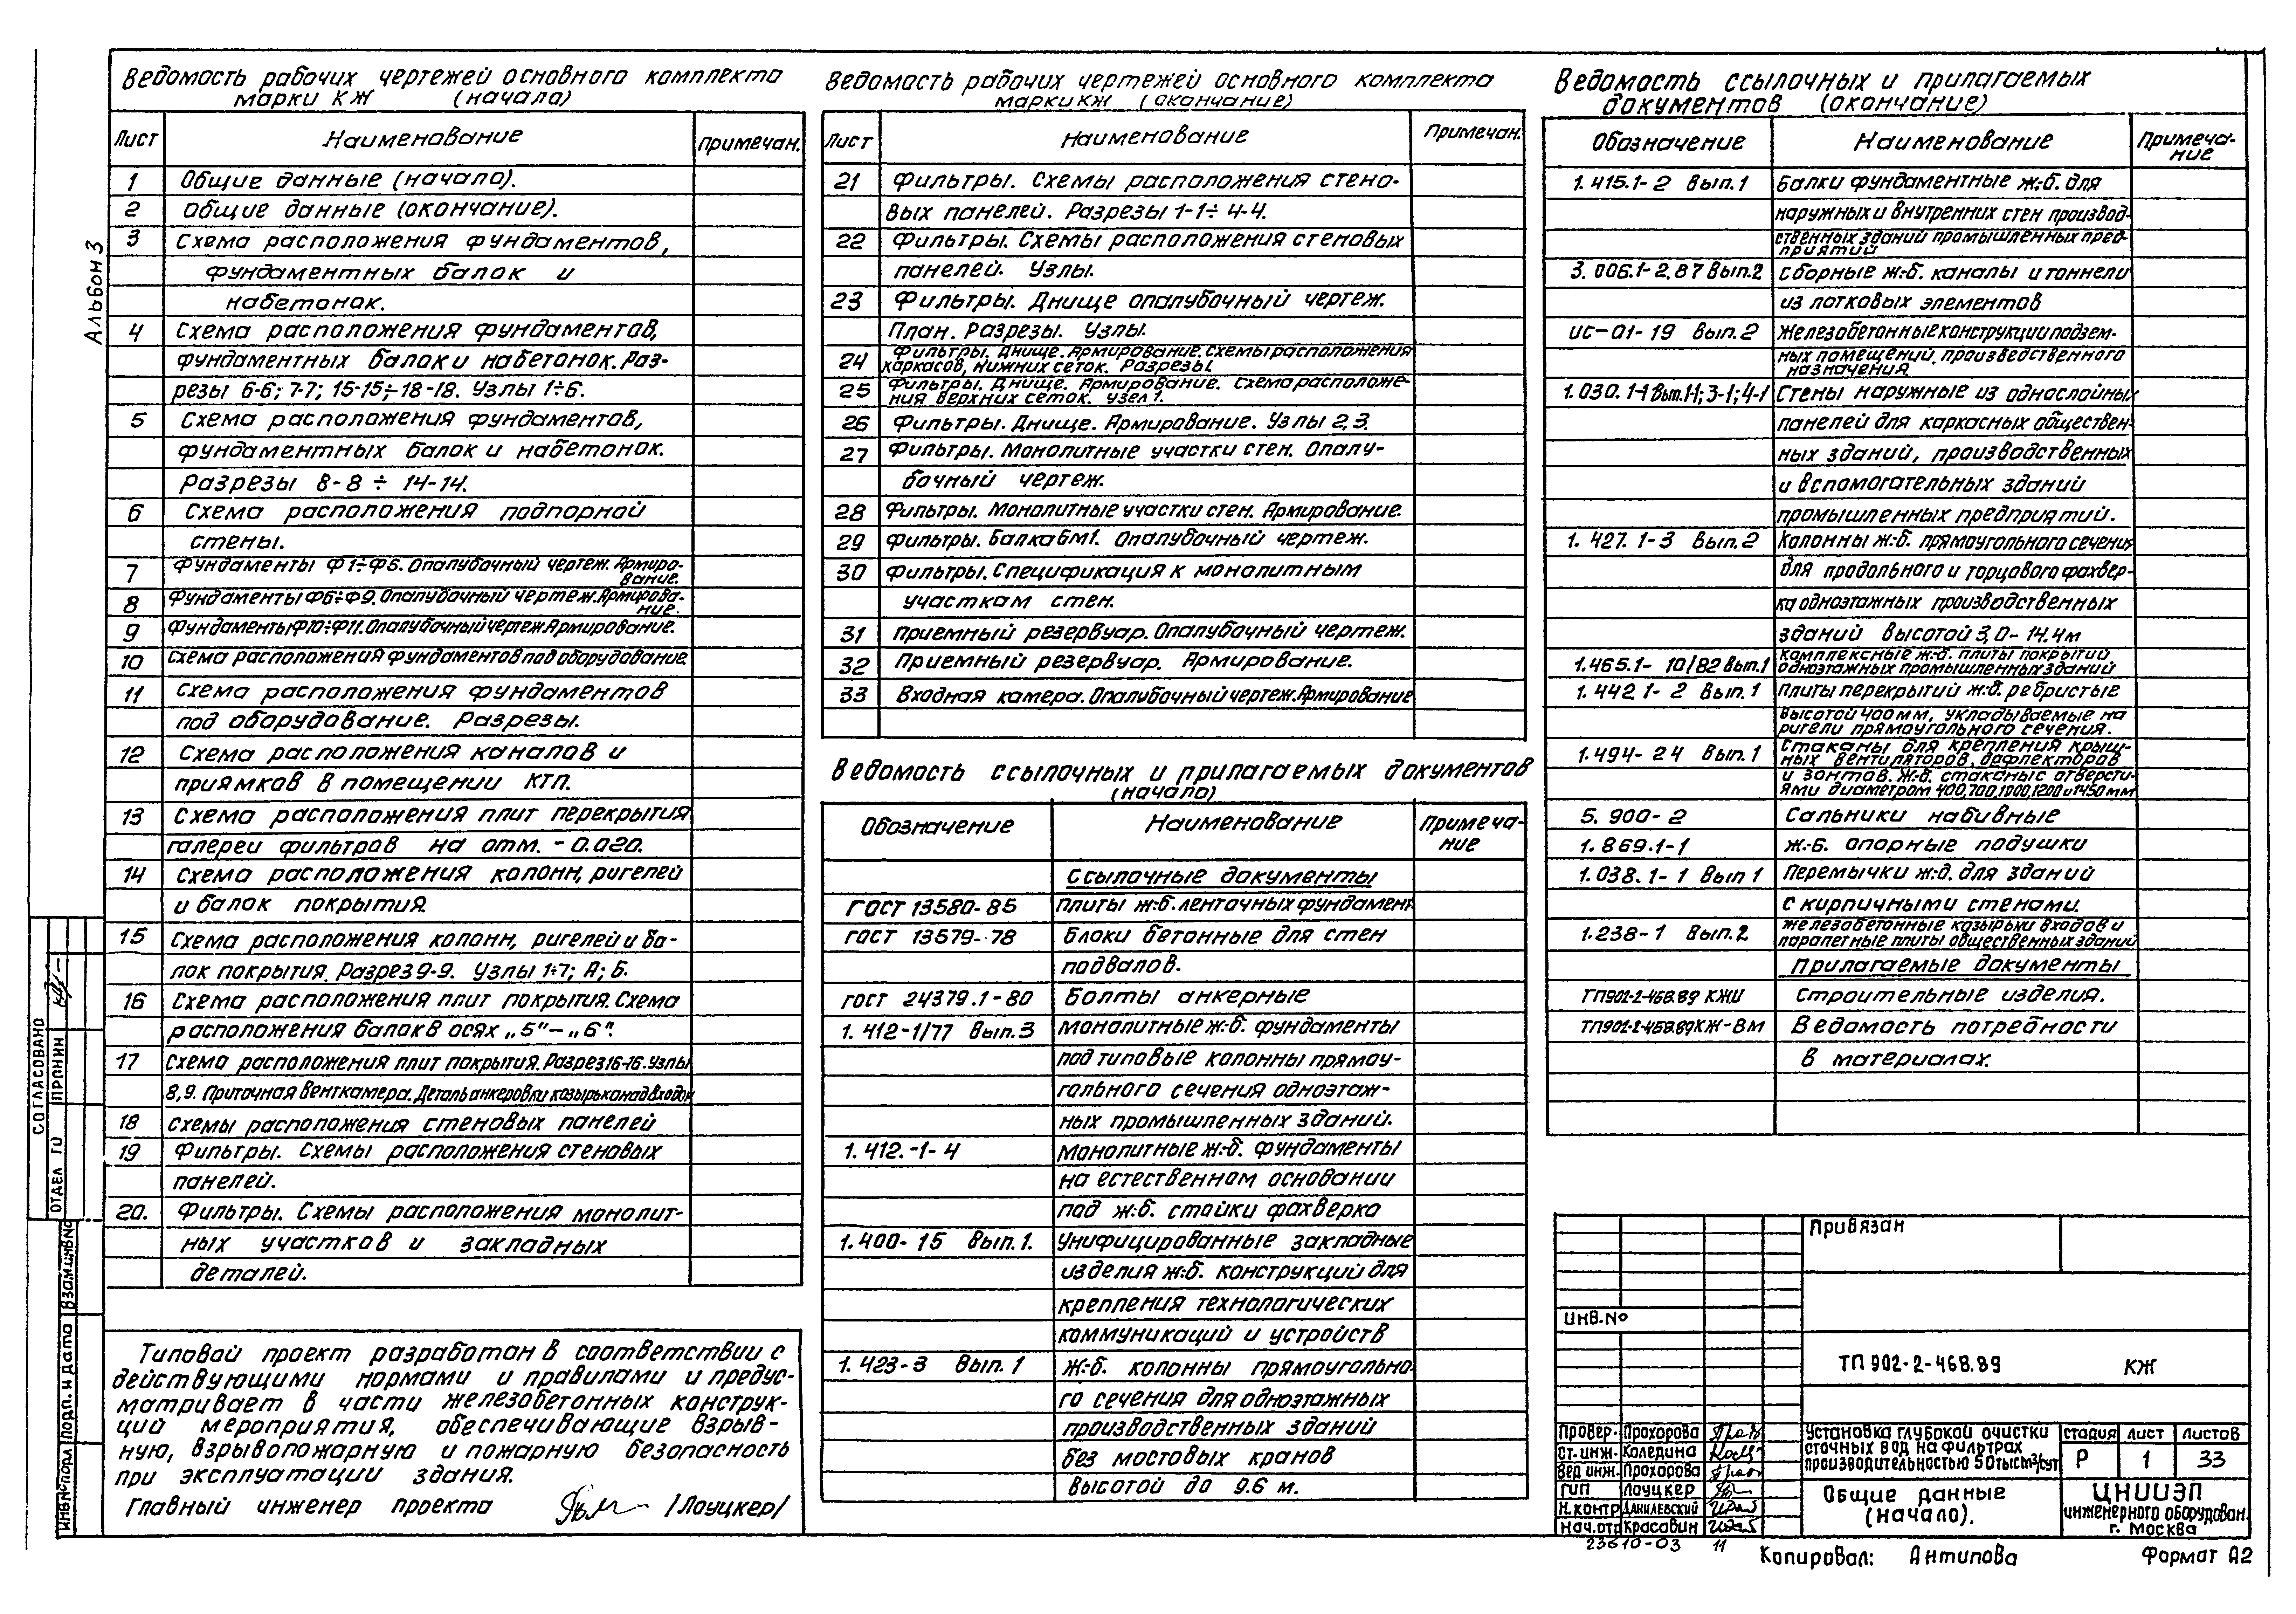 Альбом 3
Ведомость рабочих чертежей основного комплекта
марки КЖ (начало)
Лист Наименование Примечан.
1 Общие данные (начало).
2 Общие данные (окончание).
3 Схема расположения фундаментов,
фундаментных балок и
набетонок.
4 Схема расположения фундаментов,
фундаментных балок и набетонок. Раз-
резы 6-6; 7-7; 15-15÷18-18. Узлы 1÷6.
5 Схема расположения фундаментов,
фундаментных балок и набетонок.
Разрезы 8-8 ÷ 14-14.
6 Схема расположения подпорной
стены.
7 Фундаменты Ф1÷Ф5. Опалубочный чертеж. Армиро-
вание.
8 Фундаменты Ф6÷Ф9. Опалубочный чертеж. Армирова-
ние.
9 Фундаменты Ф10÷Ф11. Опалубочный чертеж Армирование.
10 Схема расположения фундаментов под оборудование
11 Схема расположения фундаментов
под оборудование. Разрезы.
12 Схема расположения каналов и
приямков в помещении КТП.
13 Схема расположения плит перекрытия
галереи фильтров на отм. -0.020.
14 Схема расположения колонн, ригелей
и балок покрытия.
15 Схема расположения колонн, ригелей и ба-
лок покрытия. Разрез 9-9. Узлы 1÷7; А; Б.
16 Схема расположения плит покрытия. Схема
расположения балок в осях „5"–„6".
17 Схема расположения плит покрытия. Разрез 16-16. Узлы
8, 9. Приточная венткамера. Деталь анкеровки козырька над входом
18 Схемы расположения стеновых панелей
19 Фильтры. Схемы расположения стеновых
панелей.
20. Фильтры. Схемы расположения монолит-
ных участков и закладных
деталей.
Типовой проект разработан в соответствии с
действующими нормами и правилами и предус-
матривает в части железобетонных конструк-
ций мероприятия, обеспечивающие взрыв-
ную, взрывопожарную и пожарную безопасность
при эксплуатации здания.
Главный инженер проекта /Лоуцкер/
Ведомость рабочих чертежей основного комплекта
марки КЖ (окончание)
Лист Наименование Примечан.
21 Фильтры. Схемы расположения стено-
вых панелей. Разрезы 1-1÷ 4-4.
22 Фильтры. Схемы расположения стеновых
панелей. Узлы.
23 Фильтры. Днище опалубочный чертеж.
План. Разрезы. Узлы.
24 Фильтры. Днище. Армирование. Схемы расположения
каркасов, нижних сеток. Разрезы.
25 Фильтры. Днище. Армирование. Схема расположе-
ния верхних сеток. Узел 1.
26 Фильтры. Днище. Армирование. Узлы 2, 3.
27 Фильтры. Монолитные участки стен. Опалу-
бочный чертеж.
28 Фильтры. Монолитные участки стен. Армирование.
29 Фильтры. Балка Бм1. Опалубочный чертеж.
30 Фильтры. Спецификация к монолитным
участкам стен.
31 Приемный резервуар. Опалубочный чертеж.
32 Приемный резервуар. Армирование.
33 Входная камера. Опалубочный чертеж. Армирование
Ведомость ссылочных и прилагаемых документов
(начало)
Обозначение Наименование Примеча-
ние
Ссылочные документы
ГОСТ 13580-85 Плиты ж.-б. ленточных фундамент
ГОСТ 13579-78 Блоки бетонные для стен
подвалов.
ГОСТ 24379.1-80 Болты анкерные
1. 412-1/77 Вып. 3 Монолитные ж.-б. фундаменты
под типовые колонны прямоу-
гольного сечения одноэтаж-
ных промышленных зданий.
1. 412.-1-4 Монолитные ж.-б. фундаменты
на естественном основании
под ж.-б. стойки фахверка
1.400-15 Вып. 1. Унифицированные закладные
изделия ж.-б. конструкций для
крепления технологических
коммуникаций и устройств
1. 423-3 Вып. 1 Ж.-б. колонны прямоугольно-
го сечения для одноэтажных
производственных зданий
без мостовых кранов
высотой до 9.6 м.
Ведомость ссылочных и прилагаемых
документов (окончание)
Обозначение Наименование Примеча-
ние
1.415.1-2 Вып.1 Балки фундаментные ж.-б. для
наружных и внутренних стен производ-
ственных зданий промышленных пред-
приятий
3.006.1-2.87 Вып.2 Сборные ж.-б. каналы и тоннели
из лотковых элементов
ИС-01-19 Вып. 2 Железобетонные конструкции подзем-
ных помещений производственного
назначения.
1.030.1-1 Вып.1-1; 3-1; 4-1 Стены наружные из однослойных
панелей для каркасных обществен-
ных зданий, производственных
и вспомогательных зданий
промышленных предприятий.
1. 427. 1-3 Вып. 2 Колонны ж.-б. прямоугольного сечения
для продольного и торцового фахвер-
ка одноэтажных производственных
зданий высотой 3,0-14,4м
1.465.1-10/82 Вып.1 Комплексные ж.-б. плиты покрытий
одноэтажных промышленных зданий
1.442.1-2 Вып. 1 Плиты перекрытий ж.-б. ребристые
высотой 400мм, укладываемые на
ригели прямоугольного сечения.
1.494-24 Вып. 1 Стаканы для крепления крыш-
ных вентиляторов, дефлекторов
и зонтов. Ж.-б. стаканы с отверсти-
ями диаметром 400, 700, 1000, 1200 и 1450 мм
5. 900-2 Сальники набивные
1. 869.1-1 Ж.-б. опорные подушки
1. 038. 1-1 Вып 1 Перемычки ж.-б. для зданий
с кирпичными стенами.
1.238-1 Вып. 2 Железобетонные козырьки входов и
парапетные плиты общественных зданий
Прилагаемые документы
ТП902-2-468.89 КЖИ Строительные изделия.
ТП902-2-468.89 КЖ-ВМ Ведомость потребности
в материалах.
СОГЛАСОВАНО
ОТДЕЛ ГО ПРОНИН
ВЗАМ.ИНВ.№
Подп. и дата
ИНВ.№ подл
Привязан
ИНВ.№
ТП 902-2-468.89 КЖ
Провер. Прохорова
Ст. инж. Коледина
Вед инж. Прохорова
ГИП Лоуцкер
Н. контр Данилевский
Нач. отд Красавин
Установка глубокой очистки
сточных вод на фильтрах
производительностью 50 тыс м3/сут
Стадия Лист Листов
Р 1 33
Общие данные
(начало).
ЦНИИЭП
инженерного оборудован.
г. Москва
23610-03 11
Копировал: Антипова Формат А2